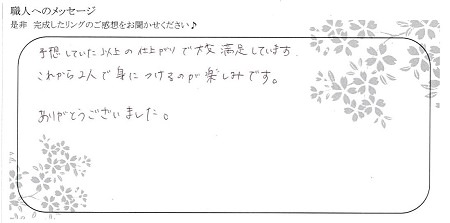 職人へのメッセージ
是非 完成したリングのご感想をお聞かせください♪
予想していた以上の仕上がりで大変満足しています.
これから2人で身につけるのが楽しみです。
ありがとうございました。